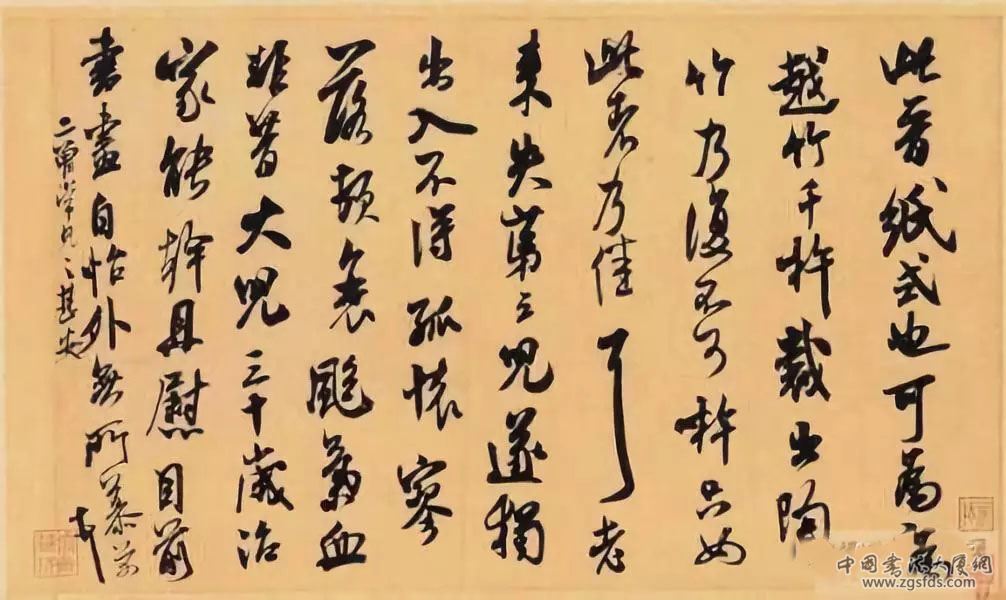 此晉紙式也可為
越竹千杵裁出陶
竹乃復不可杵只如
此者乃佳耳老
來失第三兒遂獨
出入不得孤懷寥
落頓衰颯氣血
非昔大兒三十歲治
家能幹且慰目前
書畫自怡外無所慕芾
二曾常見之甚安
中國書法大厦網
www.zgsfds.com